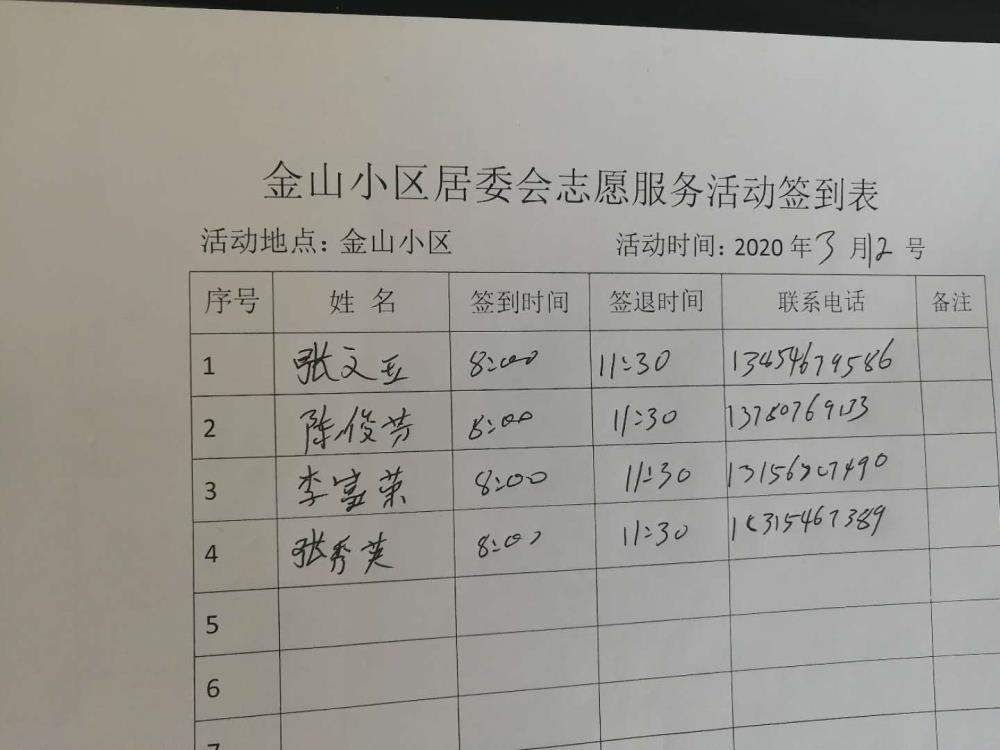 金山小区居委会志愿服务活动签到表
活动地点：金山小区 活动时间：2020年3月12号
序号 姓名 签到时间 签退时间 联系电话 备注
1 张文亚 8:00 11:30 13454679586
2 陈俊芳 8:00 11:30
3 李富荣 8:00 11:30
4 张秀英 8:00 11:30
5
6
7